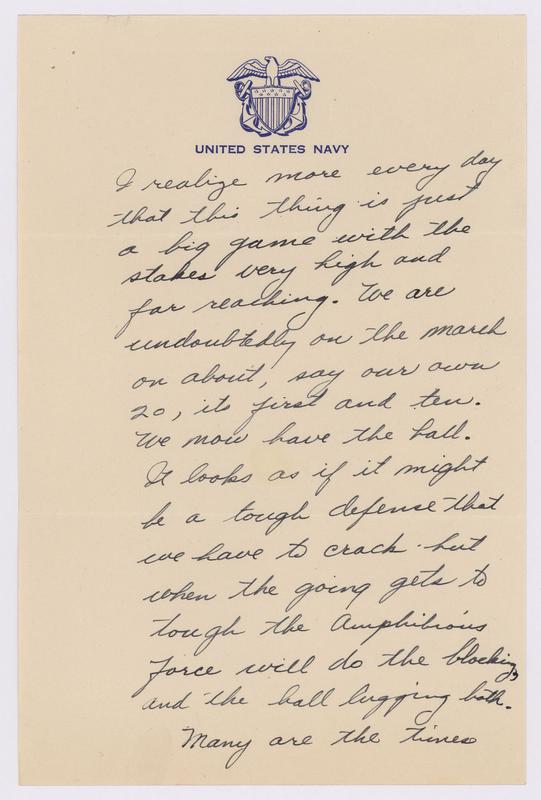 UNITED STATES NAVY
I realize more every day
that this thing is just
a big game with the
stakes very high and
far reaching. We are
undoubtedly on the march
on about, say our own
20, its first and ten.
We now have the ball.
It looks as if it might
be a tough defense that
we have to crack but
when the going gets to
tough the Amphibious
Force will do the blocking,
and the ball lugging both.
Many are the times